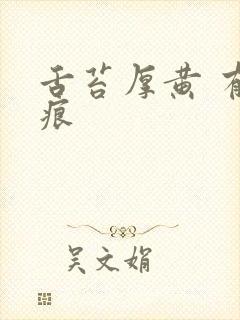 舌苔厚黄 有
痕
吴文娟